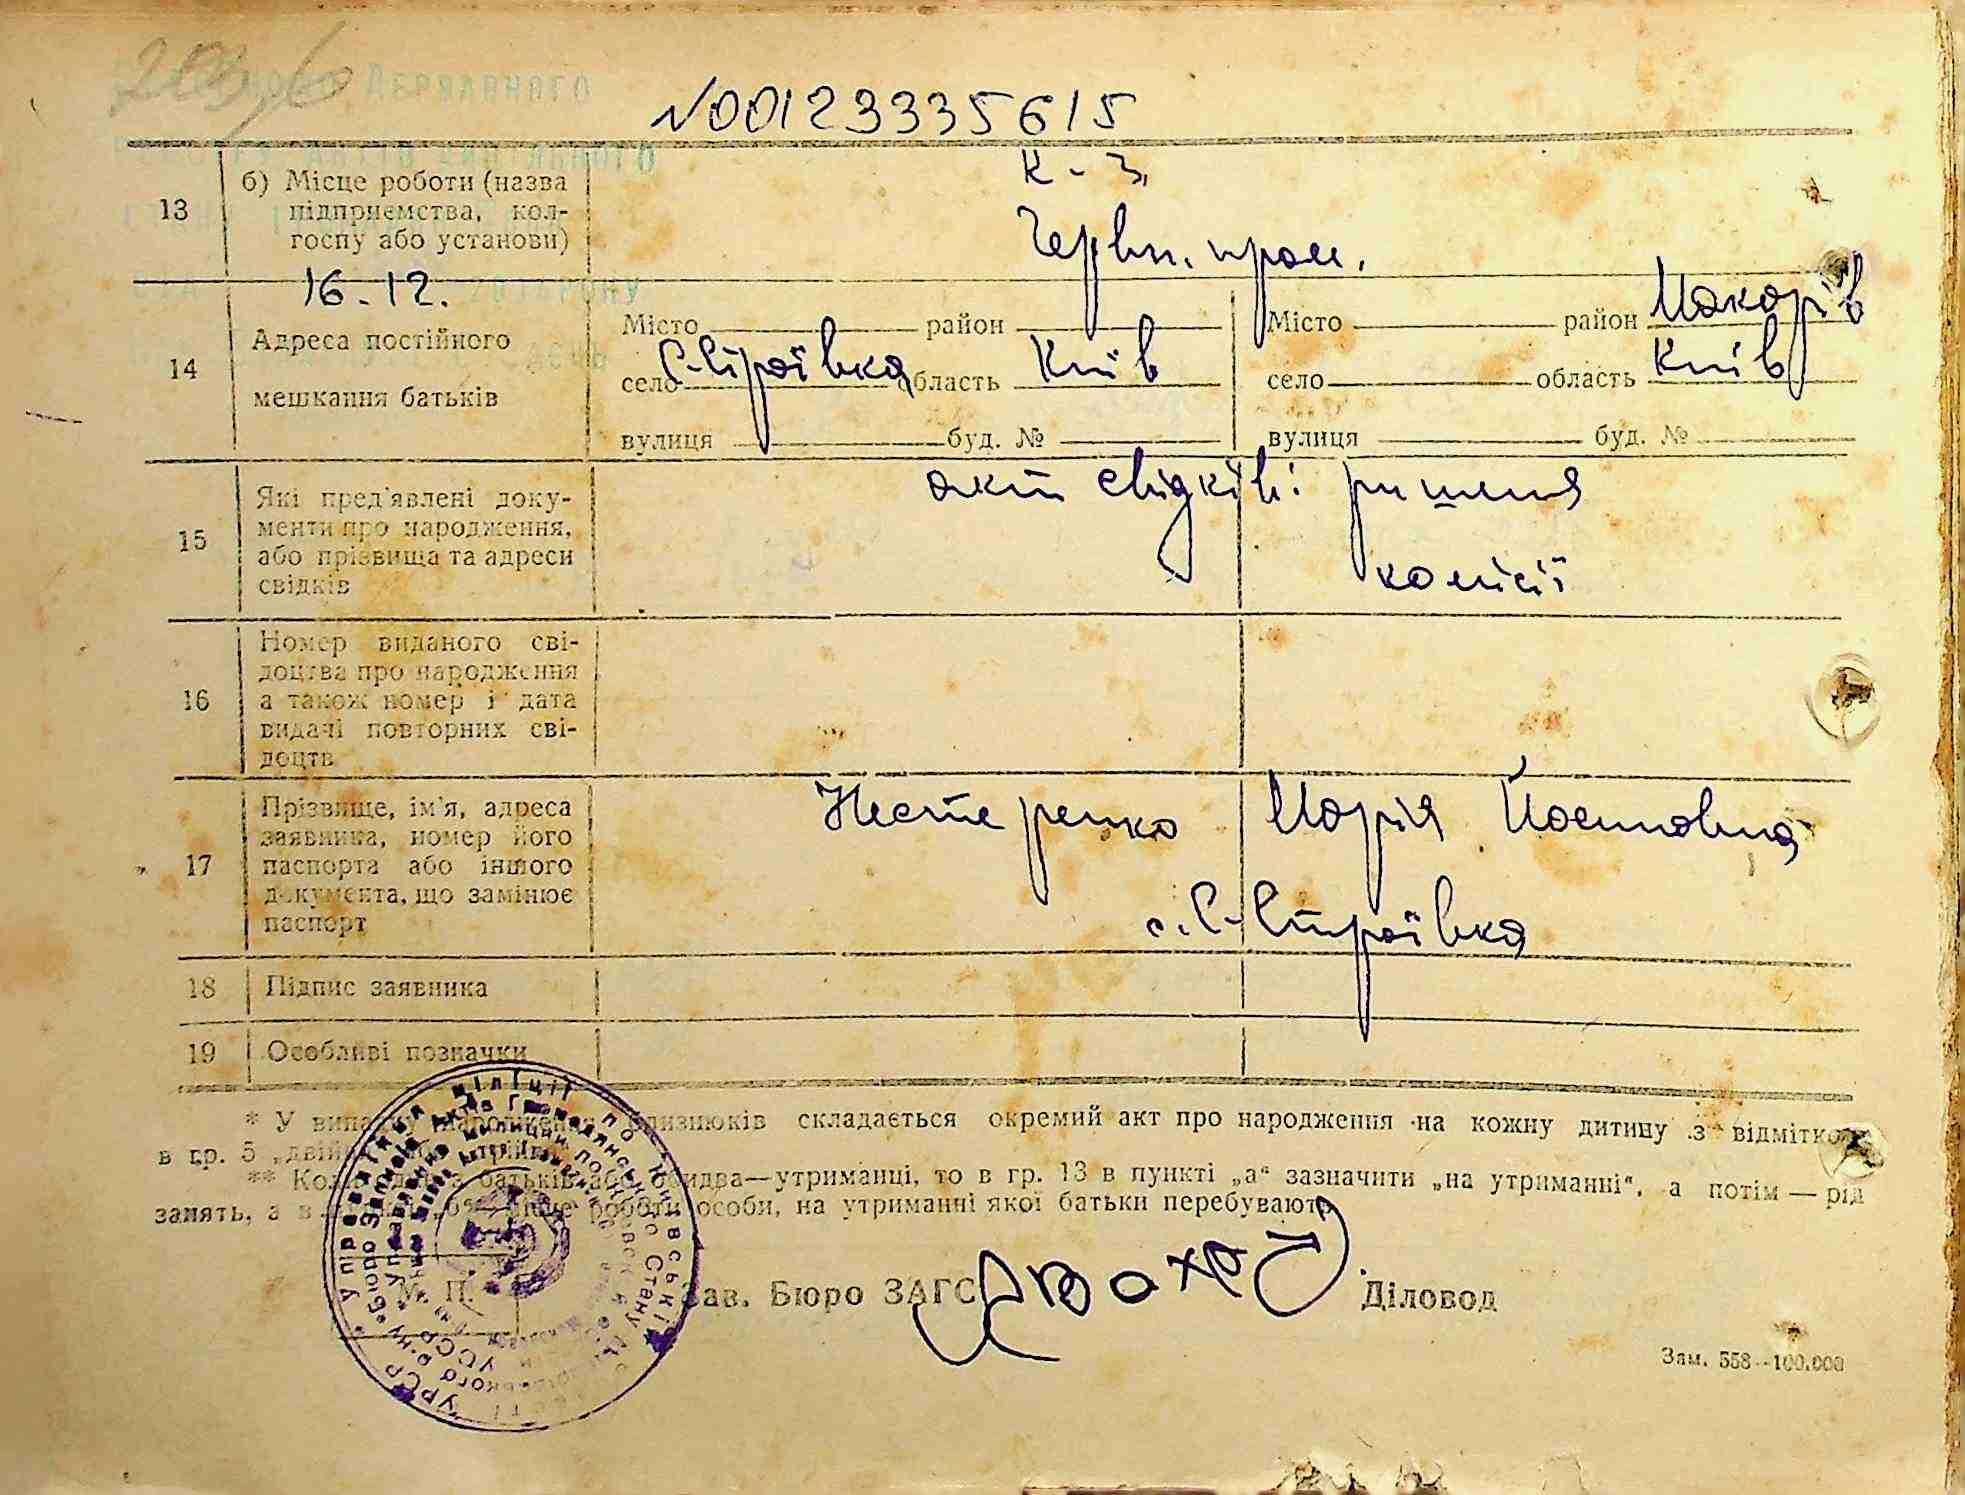 203,6
Державного
N00123335615
13
б) Місце роботи (назва
підприємства, кол-
госпу або установи)
к-з
Червн. пром.
16-12.
14
Адреса постійного
мешкання батьків
Місто район
село С-Строївка область Київ
вулиця буд. №
Місто район Макарів
село область Київ
вулиця буд. №
15
Які пред'явлені доку-
менти про народження,
або прізвища та адреси
свідків
акт свідків: ришення
комісії
16
Номер виданого сві-
доцтва про народження
а також номер і дата
видачі повторних сві-
доцтв
17
Прізвище, ім'я, адреса
заявника, номер його
паспорта або іншого
документа, що замінює
паспорт
Нестеренко Марія Йосиповна
с. С-Строївка
18
Підпис заявника
19
Особливі позначки
* У випадку народження близнюків складається окремий акт про народження на кожну дитину з відміткою
в гр. 5 „двійня"
** Коли один з батьків або обидва—утриманці, то в гр. 13 в пункті „а" зазначити „на утриманні", а потім — рід
занять, а в пункті „б" місце роботи особи, на утриманні якої батьки перебувають.
Управління міліції по Київській
УРСР
М. П.
Зав. Бюро ЗАГС
Діловод
Зам. 558—100.000